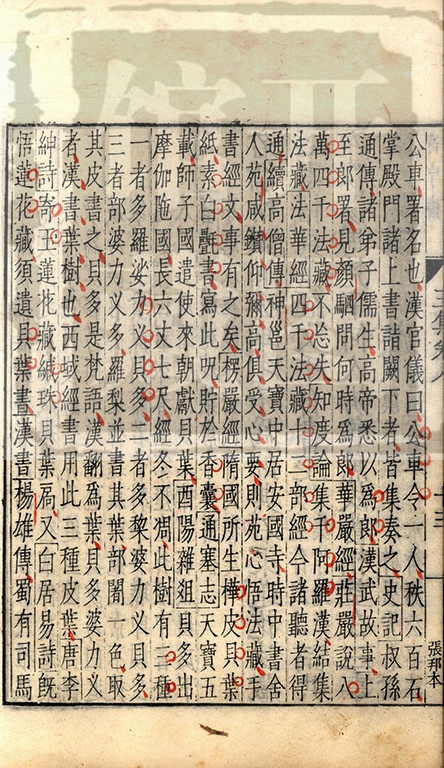 公車署名也漢官儀曰公車令一人秩六百石
掌殿門諸上書詣闕下者皆集奏之史記叔孫
通傳諸弟子儒生高帝悉以為郎漢武故事上
至郎署見顏駟問何時為郎華嚴經莊嚴說八
萬四千法藏不忘失知度論集千阿羅漢結集
法藏法華經四千法藏十二部經今諸聽者得
通續高僧傳神邕天寶中居安國寺時中書舍
人苑咸鑽仰彌高俱受心要則苑心悟法藏手
書經文事有之矣楞嚴經隋國所生樺皮貝葉
紙素白㲲書寫此呪貯於香囊通塞志天寶五
載師子國遣使來朝獻貝葉酉陽雜俎貝多出
摩伽陁國長六丈七尺經冬不凋此樹有三種
一者多羅娑力义貝多二者多棃婆力义貝多
三者部婆力义多羅梨並書其葉部闍一色取
其皮書之貝多是梵語漢翻為葉貝多婆力义
者漢書葉樹也西域經書用此三種皮葉唐李
紳詩寄玉蓮花藏緘珠貝葉扃又白居易詩旣
悟蓮花藏須遺貝葉書漢書楊雄傳蜀有司馬
張邦本